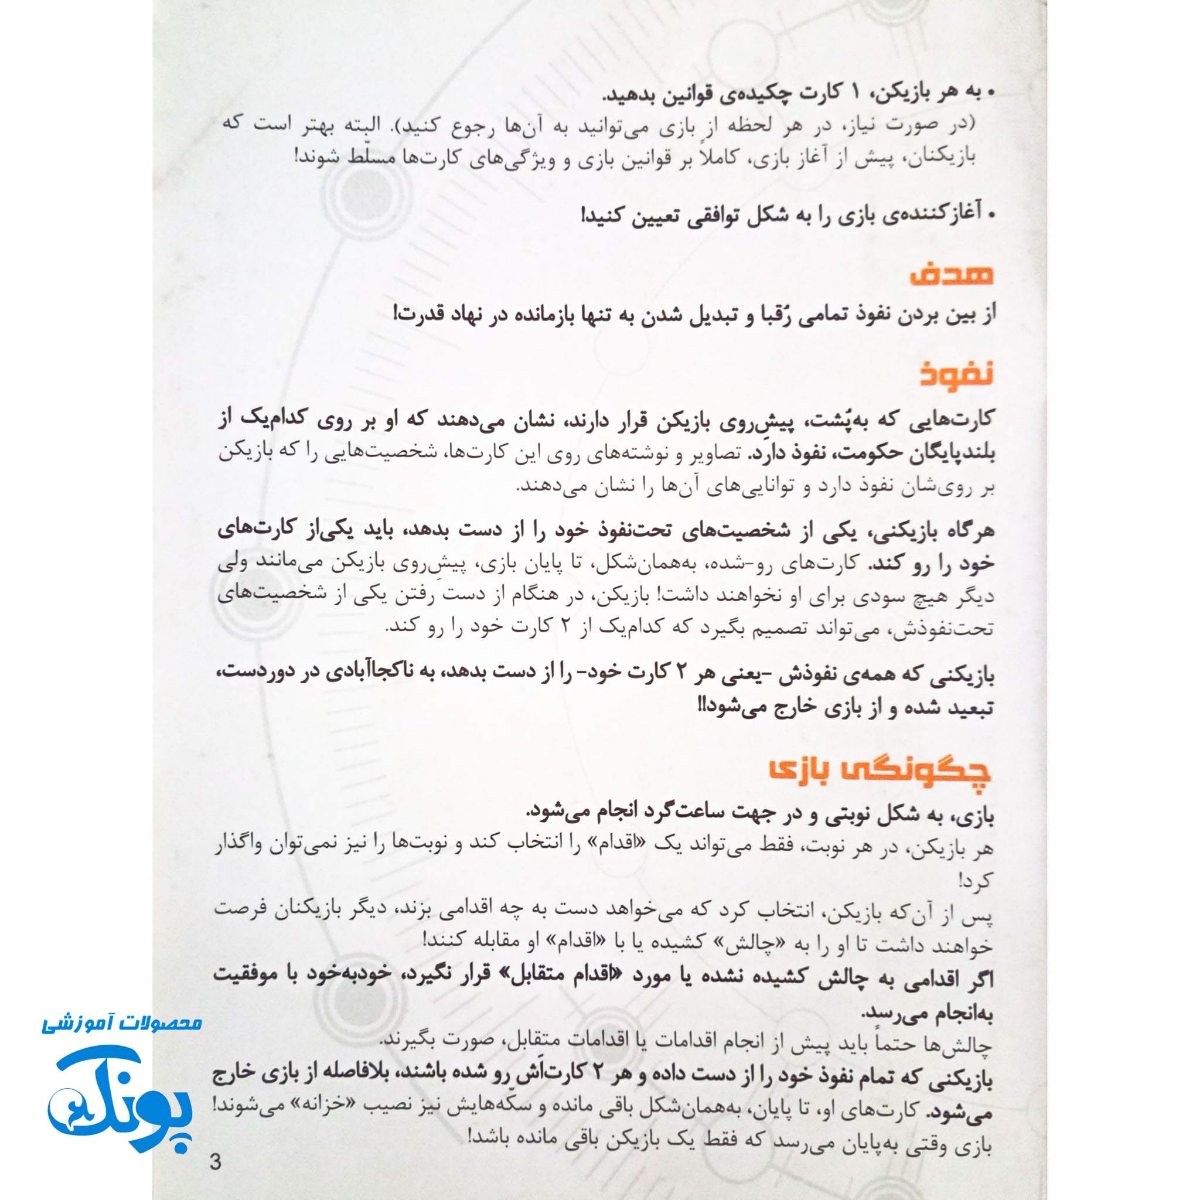 • به هر بازیکن، ۱ کارت چکیده‌ی قوانین بدهید.
(در صورت نیاز، در هر لحظه از بازی می‌توانید به آن‌ها رجوع کنید). البته بهتر است که
بازیکنان، پیش از آغاز بازی، کاملاً بر قوانین بازی و ویژگی‌های کارت‌ها مسلّط شوند!
• آغازکننده‌ی بازی را به شکل توافقی تعیین کنید!
هدف
از بین بردن نفوذ تمامی رُقبا و تبدیل شدن به تنها بازمانده در نهاد قدرت!
نفوذ
کارت‌هایی که به‌پُشت، پیشِ‌روی بازیکن قرار دارند، نشان می‌دهند که او بر روی کدام‌یک از
بلندپایگان حکومت، نفوذ دارد. تصاویر و نوشته‌های روی این کارت‌ها، شخصیت‌هایی را که بازیکن
بر روی‌شان نفوذ دارد و توانایی‌های آن‌ها را نشان می‌دهند.
هرگاه بازیکنی، یکی از شخصیت‌های تحت‌نفوذ خود را از دست بدهد، باید یکی‌از کارت‌های
خود را رو کند. کارت‌های رو-شده، به‌همان‌شکل، تا پایان بازی، پیشِ‌روی بازیکن می‌مانند ولی
دیگر هیچ سودی برای او نخواهند داشت! بازیکن، در هنگام از دست رفتن یکی از شخصیت‌های
تحت‌نفوذش، می‌تواند تصمیم بگیرد که کدام‌یک از ۲ کارت خود را رو کند.
بازیکنی که همه‌ی نفوذش -یعنی هر ۲ کارت خود- را از دست بدهد، به ناکجاآبادی در دوردست،
تبعید شده و از بازی خارج می‌شود!!
چگونگی بازی
بازی، به شکل نوبتی و در جهت ساعت‌گرد انجام می‌شود.
هر بازیکن، در هر نوبت، فقط می‌تواند یک «اقدام» را انتخاب کند و نوبت‌ها را نیز نمی‌توان واگذار
کرد!
پس از آن‌که بازیکن، انتخاب کرد که می‌خواهد دست به چه اقدامی بزند، دیگر بازیکنان فرصت
خواهند داشت تا او را به «چالش» کشیده یا با «اقدام» او مقابله کنند!
اگر اقدامی به چالش کشیده نشده یا مورد «اقدام متقابل» قرار نگیرد، خودبه‌خود با موفقیت
به‌انجام می‌رسد.
چالش‌ها حتماً باید پیش از انجام اقدامات یا اقدامات متقابل، صورت بگیرند.
بازیکنی که تمام نفوذ خود را از دست داده و هر ۲ کارت‌اَش رو شده باشند، بلافاصله از بازی خارج
می‌شود. کارت‌های او، تا پایان، به‌همان‌شکل باقی مانده و سکّه‌هایش نیز نصیب «خزانه» می‌شوند!
بازی وقتی به‌پایان می‌رسد که فقط یک بازیکن باقی مانده باشد!
3
محصولات آموزشی
پونک